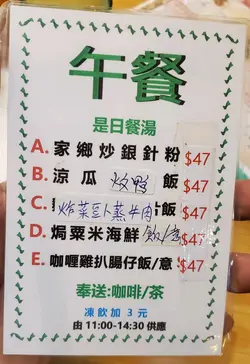 午餐
是日餐湯
A. 家鄉炒銀針粉 $47
B. 涼瓜炆鴨飯 $47
C. 炸菜蒸牛肉飯 $47
D. 焗粟米海鮮飯 $47
E. 咖喱雞扒腸仔飯/意 $47
奉送:咖啡/茶
凍飲加3元
由11:00-14:30供應